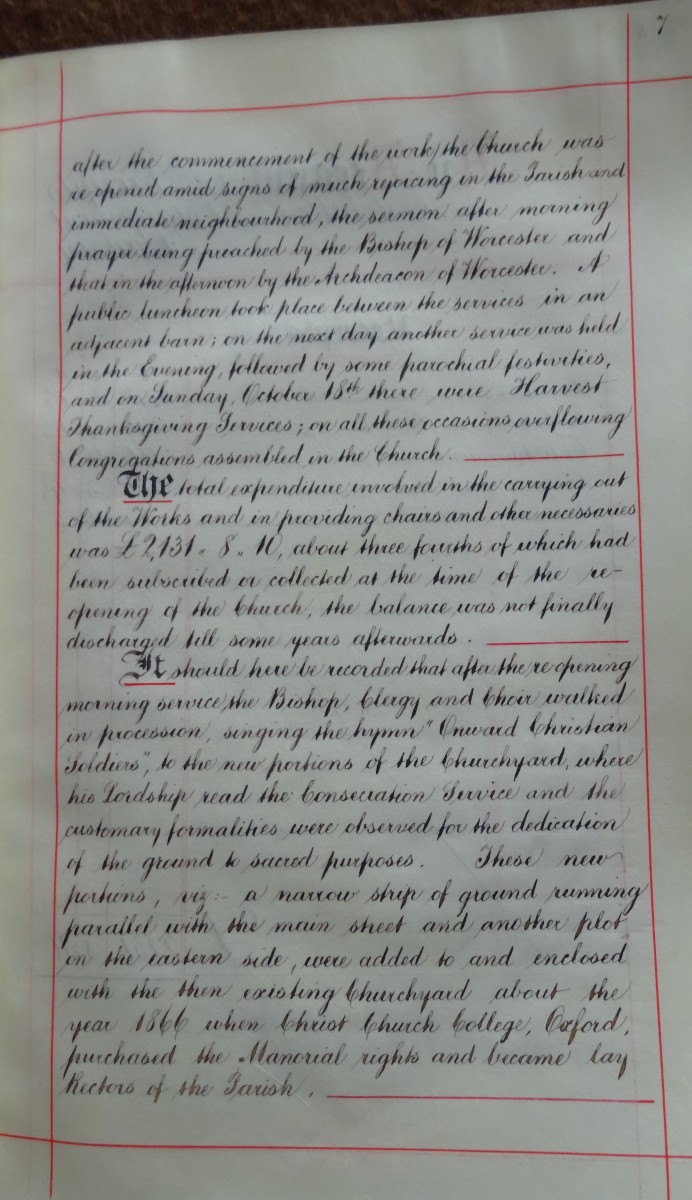 7
after the commencement of the work) the Church was
re opened amid signs of much rejoicing in the Parish and
immediate neighbourhood, the sermon after morning
prayer being preached by the Bishop of Worcester and
that in the afternoon by the Archdeacon of Worcester. A
public luncheon took place between the services in an
adjacent barn; on the next day another service was held
in the Evening, followed by some parochial festivities,
and on Sunday, October 18th there were Harvest
Thanksgiving Services; on all these occasions overflowing
Congregations assembled in the Church.
The total expenditure involved in the carrying out
of the Works and in providing chairs and other necessaries
was £2,131 " 8 " 10, about three fourths of which had
been subscribed or collected at the time of the re-
opening of the Church, the balance was not finally
discharged till some years afterwards.
It should here be recorded that after the re opening
morning service, the Bishop, Clergy and Choir walked
in procession, singing the hymn "Onward Christian
Soldiers", to the new portions of the Churchyard, where
his Lordship read the Consecration Service and the
customary formalities were observed for the dedication
of the ground to sacred purposes. These new
portions, viz:- a narrow strip of ground running
parallel with the main street and another plot
on the eastern side, were added to and enclosed
with the then existing Churchyard about the
year 1866 when Christ Church College, Oxford,
purchased the Manorial rights and became lay
Rectors of the Parish.